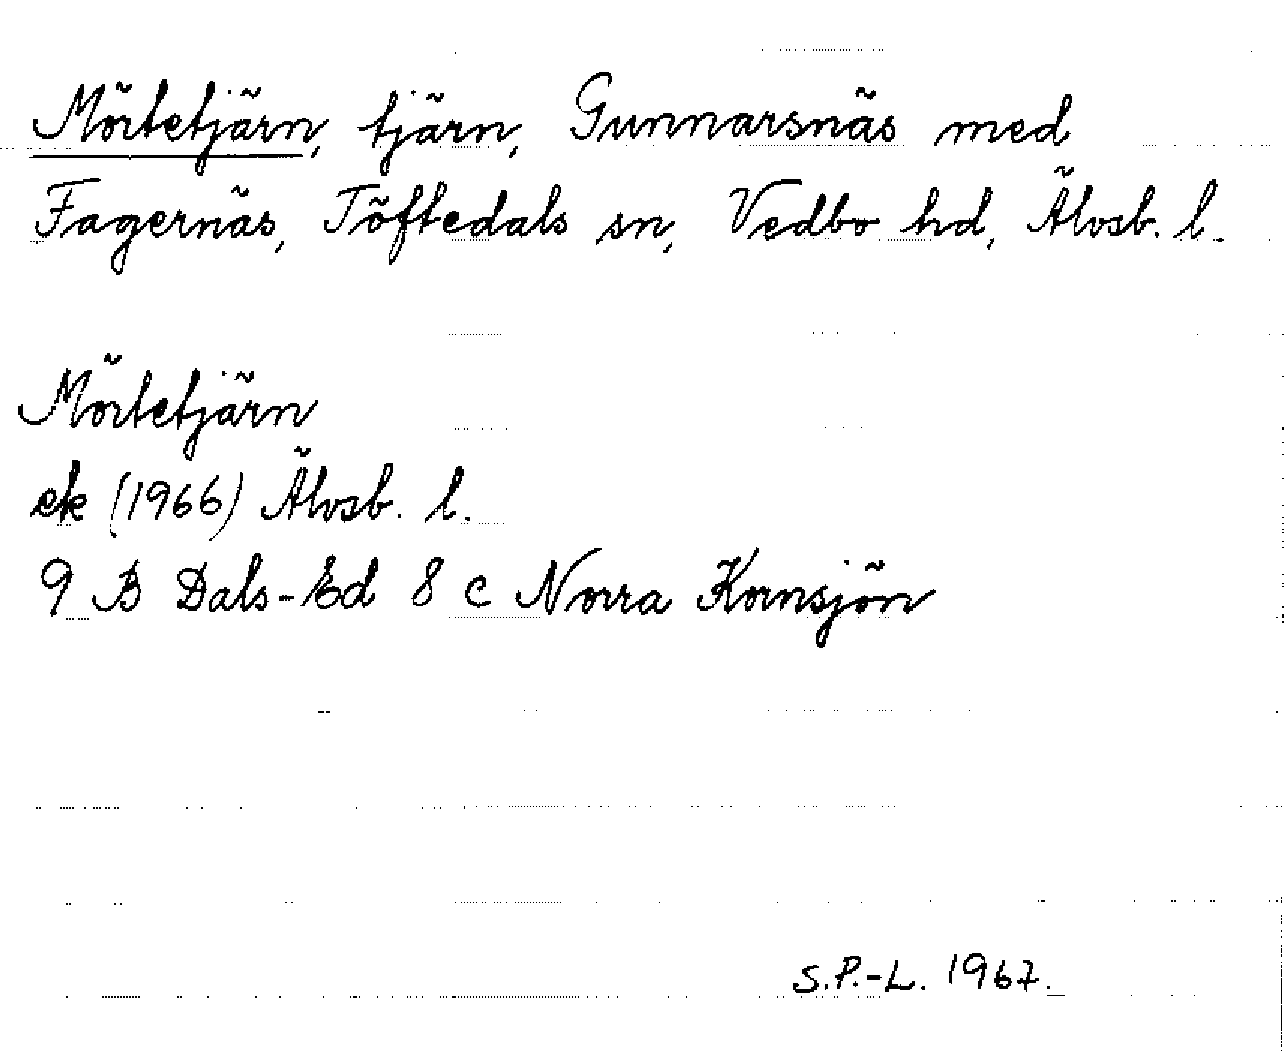 Mörtetjärn, tjärn, Gunnarsnäs med
Fagernäs, Töftedals sn, Vedbo hd, Älvsb. l.
Mörtetjärn
ek (1966) Älvsb. l.
9 B Dals-Ed 8 c Norra Kornsjön
S.P.-L. 1967.